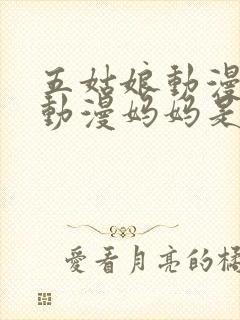 五姑娘動漫
動漫妈妈是
愛看月亮的橘